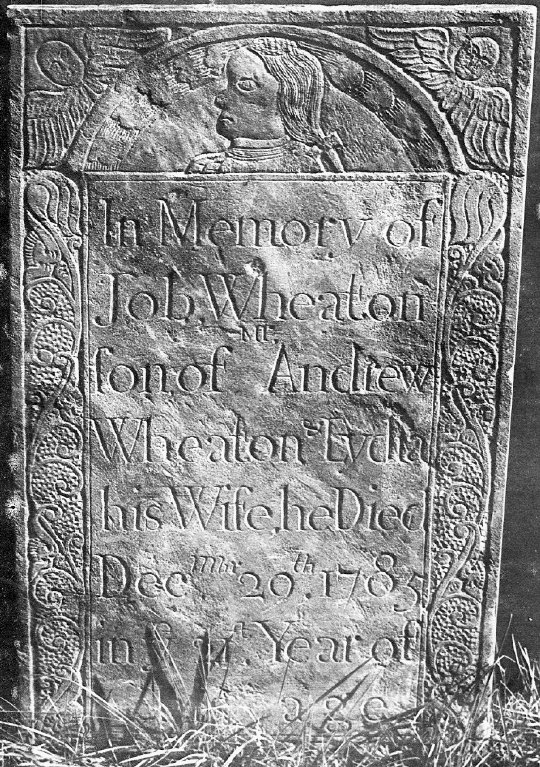 In Memory of
Job, Wheaton
ſon of Mr. Andrew
Wheaton & Lydia
his Wife, he Died
Decmbr. 29th. 1785
in Year of
age.